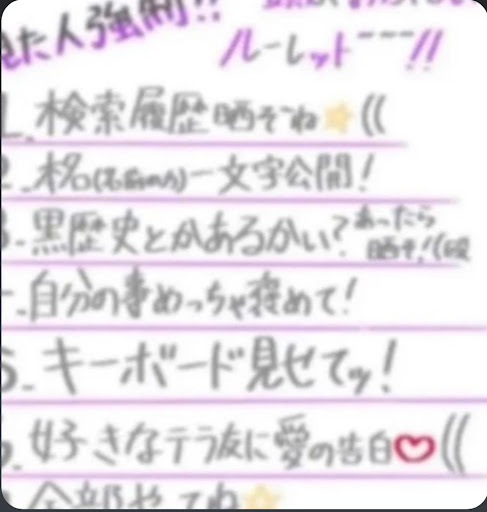 見た人強制!!
ルーレットーーー!!
1. 検索履歴晒そうね☆((
2. 本名(名前のみ)一文字公開!
3. 黒歴史とかあるかい?あったら
晒そ!((殴
自分の事めっちゃ褒めて!
5. キーボード見せてッ!
6. 好きなテラ友に愛の告白♡((
全部やってね☆